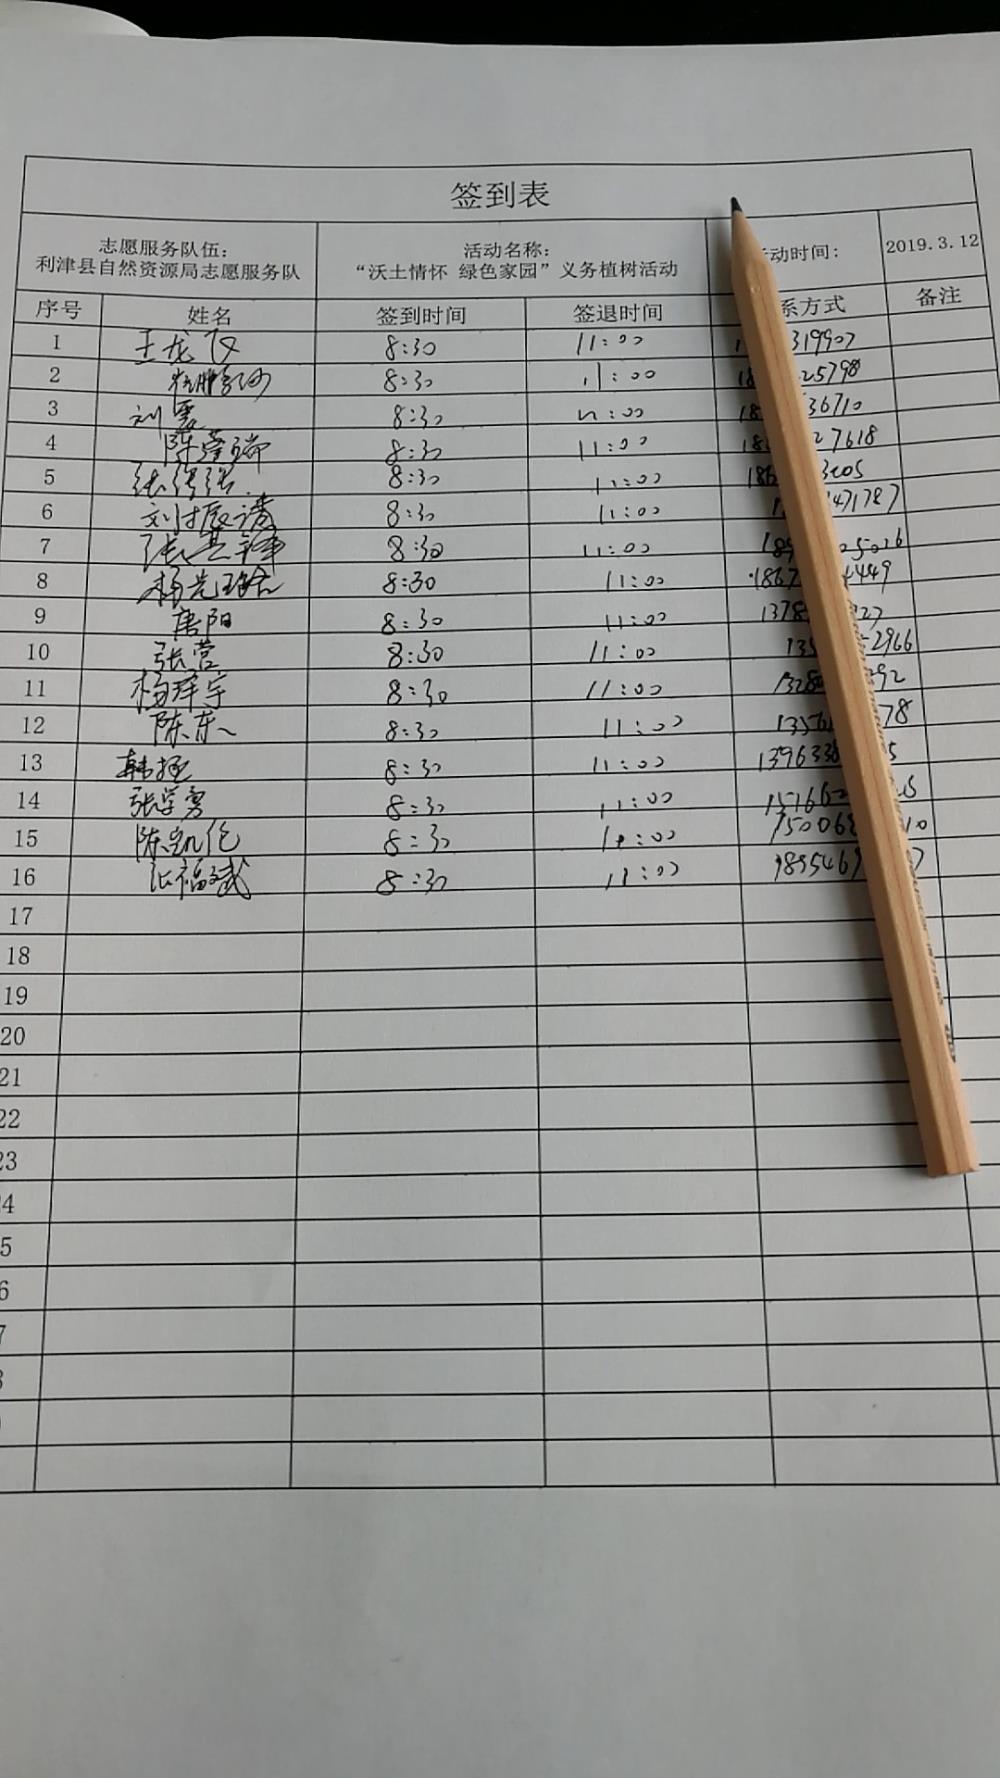 签到表
志愿服务队伍： 活动名称： 动时间： 2019.3.12
利津县自然资源局志愿服务队 “沃土情怀 绿色家园”义务植树活动
序号 姓名 签到时间 签退时间 系方式 备注
1 王龙飞 8:30 11:00 319907
2 8:30 11:00 18 25798
3 刘震 8:30 11:00 18 36710
4 陈莹瑞 8:30 11:00 18 27618
5 8:30 11:00 186 3205
6 刘振清 8:30 11:00 471787
7 8:30 11:00 189 05026
8 8:30 11:00 1867 4449
9 唐阳 8:30 11:00 1378 27
10 张营 8:30 11:00 135 2966
11 杨泽宇 8:30 11:00 1328 92
12 陈东 8:30 11:00 1356 78
13 8:30 11:00 139633 5
14 张学勇 8:30 11:00 15166
15 陈凯伦 8:30 11:00 15006 10
16 张福斌 8:30 11:00 1895469 7
17
18
19
20
21
22
23
4
5
6
7